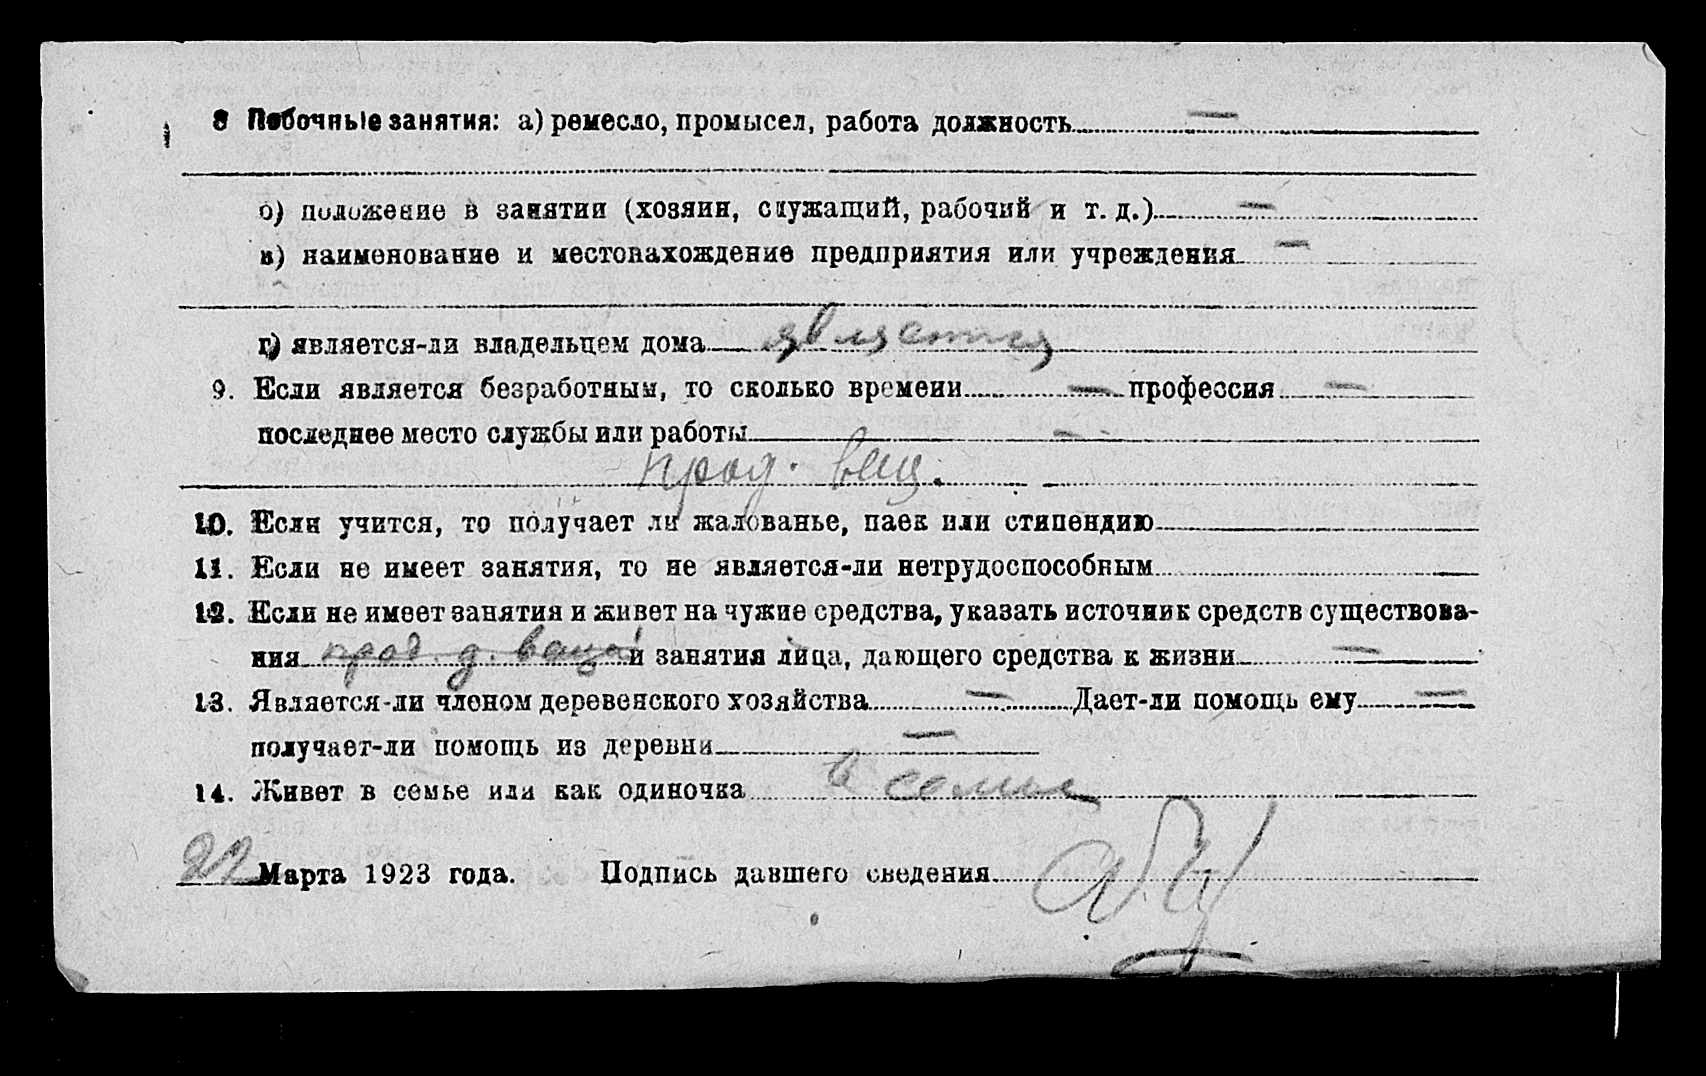 8 Побочные занятия: а) ремесло, промысел, работа должность —
б) положение в занятии (хозяин, служащий, рабочий и т. д.) —
в) наименование и местонахождение предприятия или учреждения —
г) является-ли владельцем дома является
9. Если является безработным, то сколько времени — профессия —
последнее место службы или работы —
прод. вещ.
10. Если учится, то получает ли жалованье, паек или стипендию
11. Если не имеет занятия, то не является-ли нетрудоспособным
12. Если не имеет занятия и живет на чужие средства, указать источник средств существова-
ния прод. д. вещей и занятия лица, дающего средства к жизни —
13. Является-ли членом деревенского хозяйства — Дает-ли помощь ему —
получает-ли помощь из деревни —
14. Живет в семье или как одиночка в семье
Марта 1923 года. Подпись давшего сведения